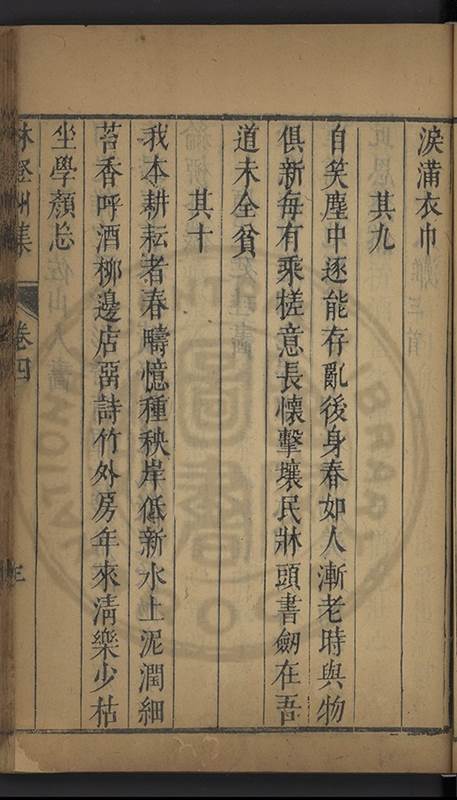 淚滿衣巾
其九
自笑塵中逐能存亂後身春如人漸老時與物
俱新每有乘槎意長懷擊壤民牀頭書劒在吾
道未全貧
其十
我本耕耘者春疇憶種秧岸低新水上泥潤細
苔香呼酒柳邊店罶詩竹外房年來淸樂少枯
坐學顏忘
林蠶州集
卷四
三